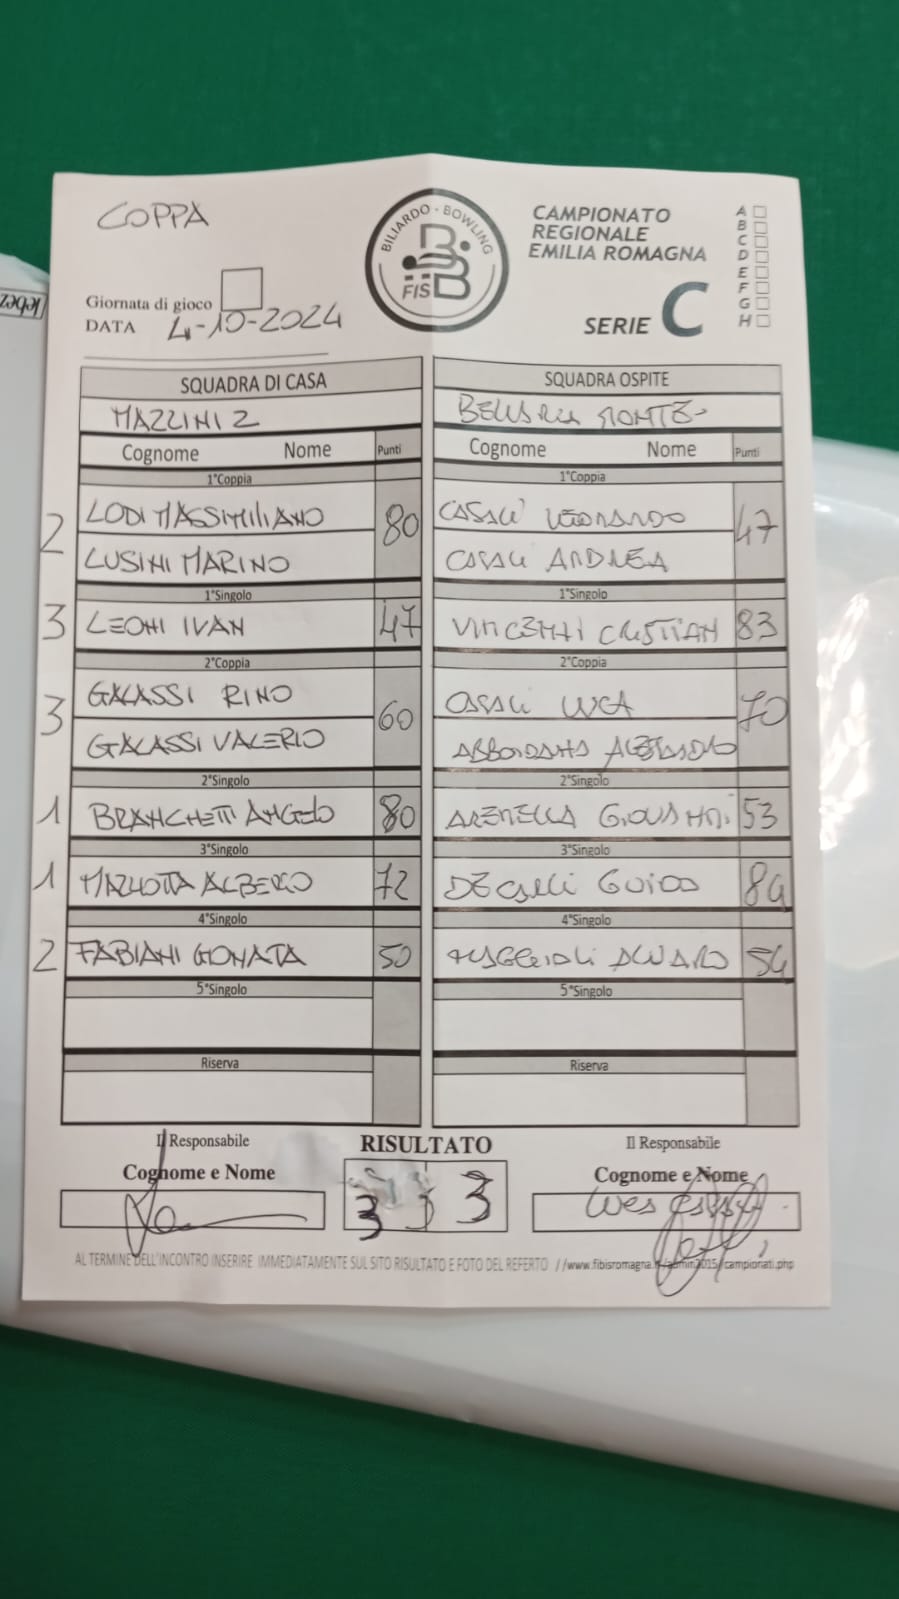 COPPA
BILIARDO - BOWLING
FISBB
CAMPIONATO
REGIONALE
EMILIA ROMAGNA
SERIE C
A
B
C
D
E
F
G
H
Giornata di gioco
DATA 4-10-2024
SQUADRA DI CASA
MAZZINI 2
Cognome Nome Punti
1°Coppia
2 LODI MASSIMILIANO 80
LUSINI MARINO
1°Singolo
3 LEONI IVAN 47
2°Coppia
3 GALASSI RINO 60
GALASSI VALERIO
2°Singolo
1 BRANCHETTI ANGELO 80
3°Singolo
1 ALBERGO 72
4°Singolo
2 FABIANI 50
5°Singolo
Riserva
SQUADRA OSPITE
MONTE
Cognome Nome Punti
1°Coppia
CASALI LEONARDO 47
CASALI ANDREA
1°Singolo
VINCENTI CRISTIAN 83
2°Coppia
CASALI LUCA 70
2°Singolo
ARENELLA GIOVANNI 53
3°Singolo
DECARLI GUIDO 84
4°Singolo
ALVARO 54
5°Singolo
Riserva
Il Responsabile
Cognome e Nome
RISULTATO
3 3
Il Responsabile
Cognome e Nome
AL TERMINE DELL'INCONTRO INSERIRE IMMEDIATAMENTE SUL SITO RISULTATO E FOTO DEL REFERTO